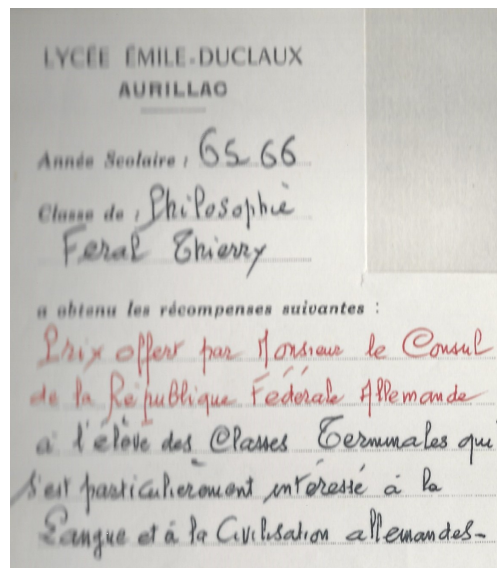 LYCÉE ÉMILE-DUCLAUX
AURILLAC
Année Scolaire : 65.66
Classe de : Philosophie
Feral Thierry
a obtenu les récompenses suivantes :
Prix offert par Monsieur le Consul
de la République Fédérale Allemande
à l'élève des Classes Terminales qui
s'est particulièrement intéressé à la
Langue et à la Civilisation allemandes-